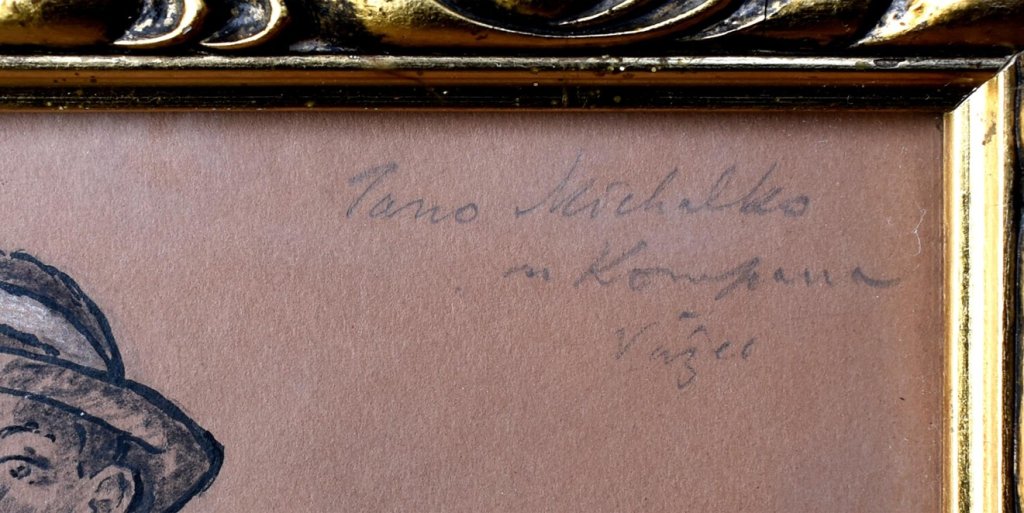 Jano Michalko
u Kompana
Važec